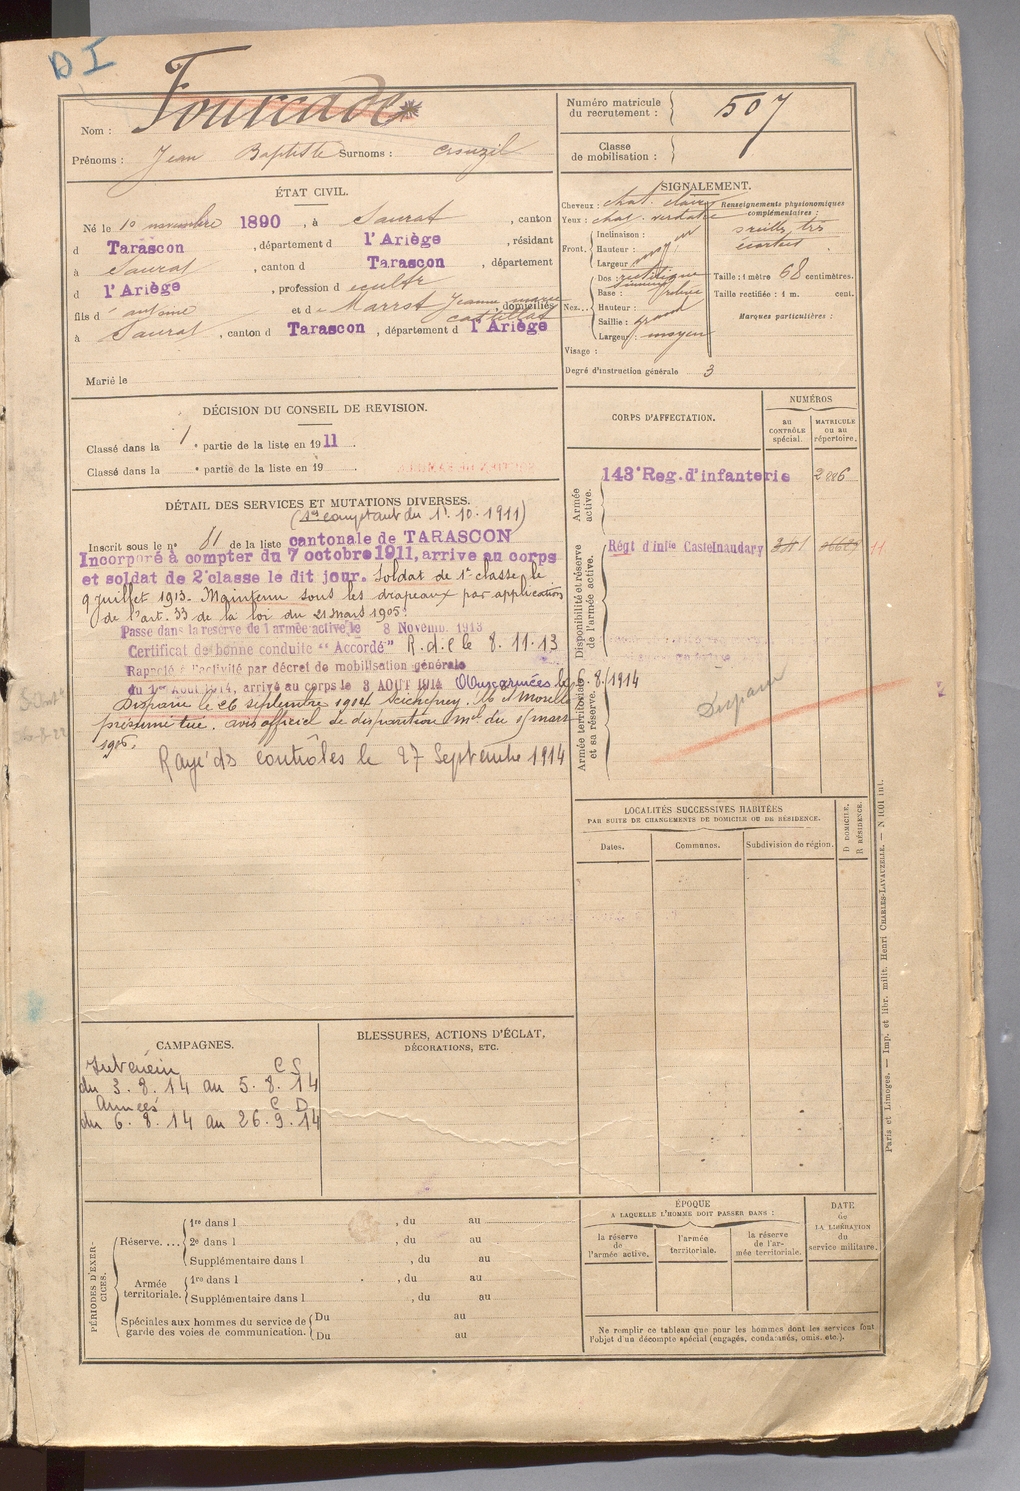 DI
Nom : Fourcade
Prénoms : Jean Baptiste Surnoms : Crouzil
Numéro matricule du recrutement : 507
Classe de mobilisation :
ÉTAT CIVIL.
Né le 10 novembre 1890, à Saurat, canton
d Tarascon, département d l'Ariège, résidant
à Saurat, canton d Tarascon, département
d l'Ariège, profession d
fils d' antoine et d Marrot Jeanne marie, domiciliés
à Saurat, canton d Tarascon, département d l'Ariège
Marié le
SIGNALEMENT.
Cheveux : chat. clairs
Yeux : verdatre
Front.
Inclinaison :
Hauteur :
Largeur :
Nez...
Dos : rectiligne
Base :
Hauteur :
Saillie : grand
Largeur : moyen
Visage :
Degré d'instruction générale 3
Renseignements physionomiques complémentaires :
écartées
Taille : 1 mètre 68 centimètres.
Taille rectifiée : 1 m. cent.
Marques particulières :
DÉCISION DU CONSEIL DE REVISION.
Classé dans la 1 e partie de la liste en 1911.
Classé dans la e partie de la liste en 19 .
CORPS D'AFFECTATION.
NUMÉROS
au CONTRÔLE spécial.
MATRICULE ou au répertoire.
Armée active.
143e Reg. d'infanterie
Disponibilité et réserve de l'armée active.
Régt d'infie Castelnaudary
Armée territoriale et sa réserve.
Disparu
DÉTAIL DES SERVICES ET MUTATIONS DIVERSES.
(Se comptant du 1er 10. 1911)
Inscrit sous le n° 81 de la liste cantonale de TARASCON
Incorporé à compter du 7 octobre 1911, arrive au corps
et soldat de 2e classe le dit jour. Soldat de 1e classe le
9 juillet 1913. Maintenu sous les drapeaux par application
de l'art. 33 de la loi du 21 mars 1905.
Passé dans la réserve de l'armée active le 8 Novemb. 1913
Certificat de bonne conduite "Accordé" R.d.C le 8.11.13
Rappelé à l'activité par décret de mobilisation générale
du 1er Août 1914, arrivé au corps le 3 AOUT 1914 Aux armées le 6.8.1914
Disparu le 26 septembre 1914 Seicheprey, Mt et Moselle
présumé tué. avis officiel de disparition du 15 mars
Rayé des contrôles le 27 Septembre 1914
LOCALITÉS SUCCESSIVES HABITÉES
PAR SUITE DE CHANGEMENTS DE DOMICILE OU DE RÉSIDENCE.
Dates.
Communes.
Subdivision de région.
D DOMICILE, R RÉSIDENCE.
CAMPAGNES.
Intérieur C S
du 3.8.14 au 5.8.14
Armées C D
du 6.8.14 au 26.9.14
BLESSURES, ACTIONS D'ÉCLAT,
DÉCORATIONS, ETC.
PÉRIODES D'EXERCICES.
Réserve....
1re dans l , du au
2e dans l , du au
Supplémentaire dans l , du au
Armée territoriale.
1re dans l , du au
Supplémentaire dans l , du au
Spéciales aux hommes du service de garde des voies de communication.
Du au
Du au
ÉPOQUE
A LAQUELLE L'HOMME DOIT PASSER DANS :
la réserve de l'armée active.
l'armée territoriale.
la réserve de l'armée territoriale.
DATE de LA LIBÉRATION du service militaire.
Ne remplir ce tableau que pour les hommes dont les services font
l'objet d'un décompte spécial (engagés, condamnés, omis, etc.).
Paris et Limoges. — Imp. et libr. milit. Henri CHARLES-LAVAUZELLE. — N 1601 int.